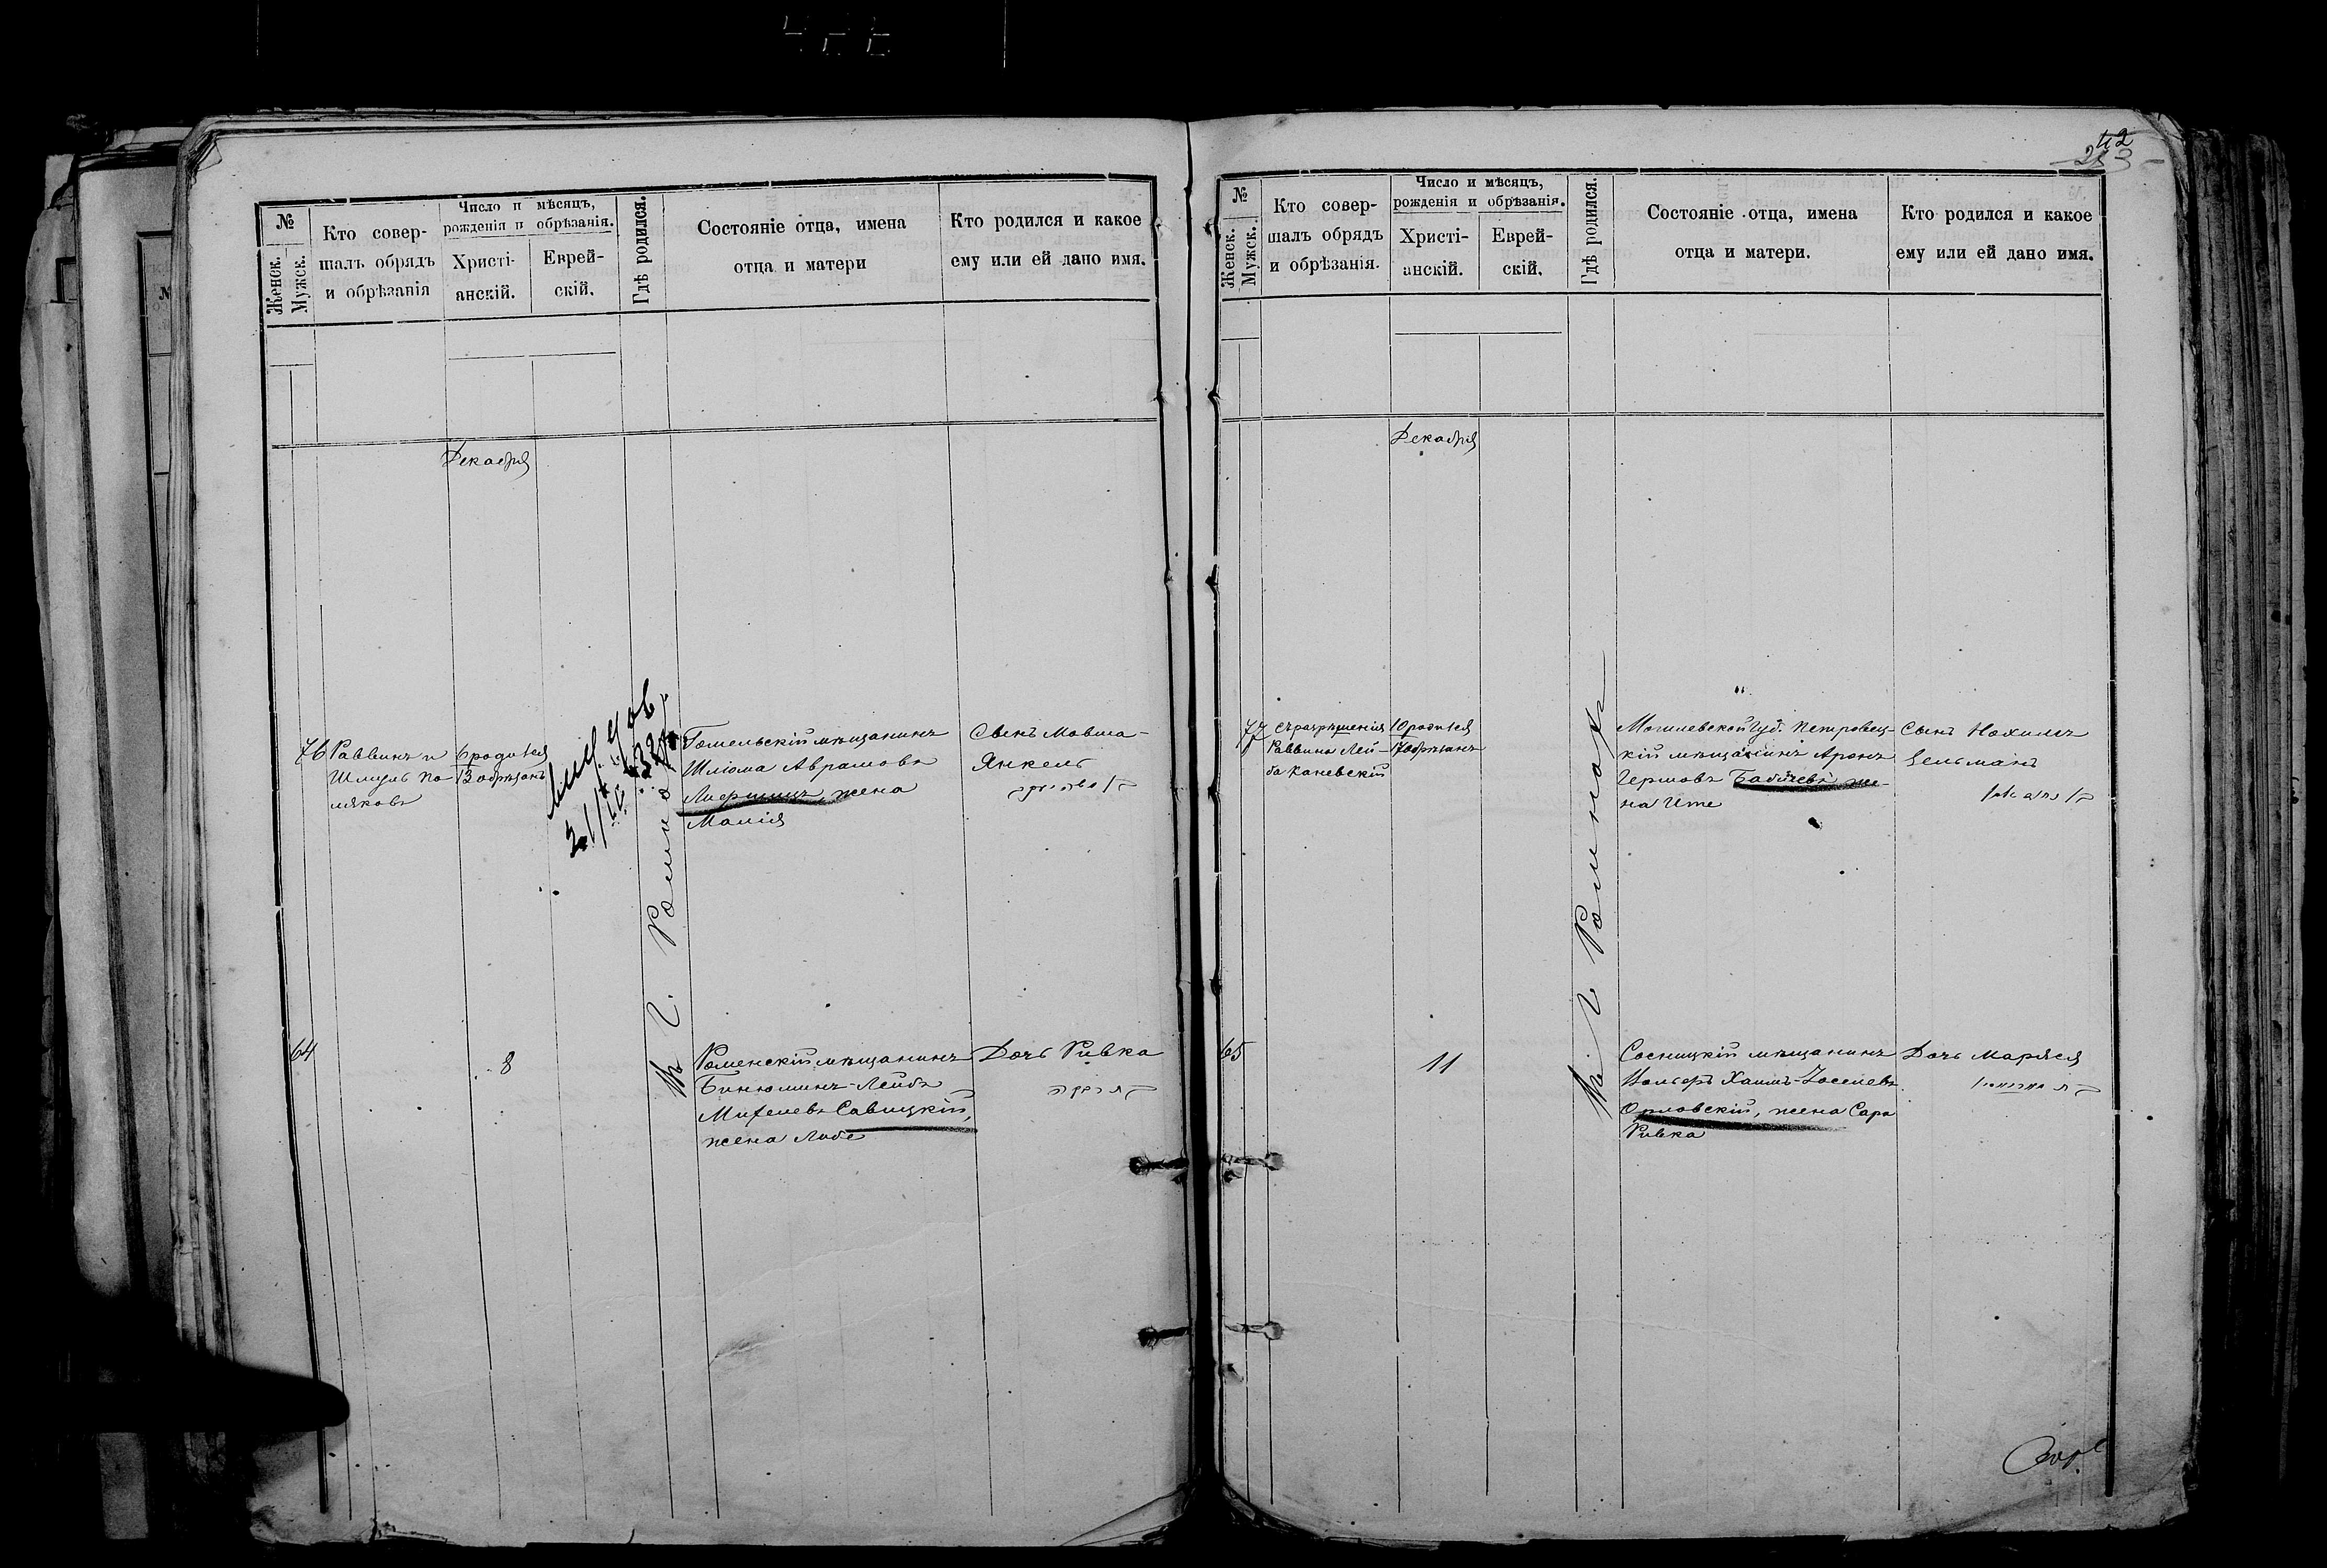 №
Женск.
Мужск.
Кто совер-
шалъ обрядъ
и обрѣзанія
Число и мѣсяцъ,
рожденія и обрѣзанія.
Христі-
анскій.
Еврей-
скій.
Гдѣ родился.
Состояніе отца, имена
отца и матери
Кто родился и какое
ему или ей дано имя.
Декабря
76
Раввинъ и
Шмуль По-
ляковъ
6 родился
13 обрѣзанъ
Въ г. Ромнахъ
Гомельскій мѣщанинъ
Шліома Аврамовъ
жена
Малія
Сынъ Мовша-
Янкель
64
8
Роменскій мѣщанинъ
Бинюминъ-Лейбъ
Михелевъ Савицкій,
жена Либе
Дочь Ривка
42
283
№
Женск.
Мужск.
Кто совер-
шалъ обрядъ
и обрѣзанія.
Число и мѣсяцъ,
рожденія и обрѣзанія.
Христі-
анскій.
Еврей-
скій.
Гдѣ родился.
Состояніе отца, имена
отца и матери.
Кто родился и какое
ему или ей дано имя.
Декабря
77
Съ разрѣшенія
Раввина Лей-
ба Каневскій
10 родился
17 обрѣзанъ
Въ г. Ромнахъ
Могилевской губ. Петровец-
кій мѣщанинъ Аронъ
Гершовъ Бабичевъ же-
на Ите
Сынъ Нохимъ
Зельманъ
65
11
Сосницкій мѣщанинъ
Вольфъ Хаимъ-Іоселевъ
Орловскій, жена Сара
Ривка
Дочь Маряся